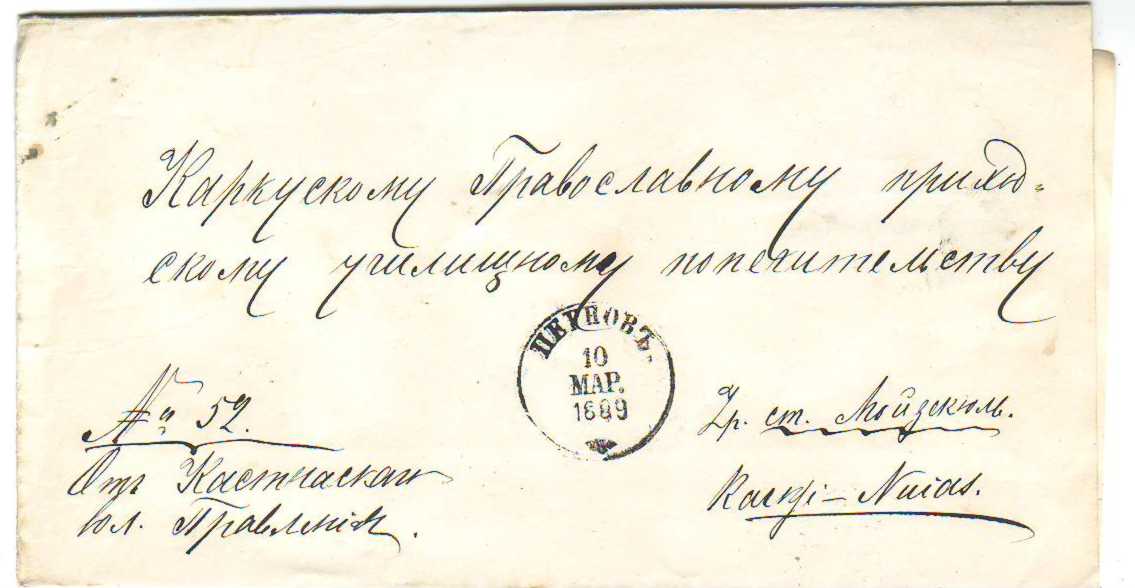 Каркускому Православному приход-
скому училищному попечительству
ПЕРНОВЪ.
10
МАР.
1889
№ 52.
Отъ Кастнаскаго
вол. Правленія.
Чр. ст. Мойзекюль.
Karksi-Nuias.